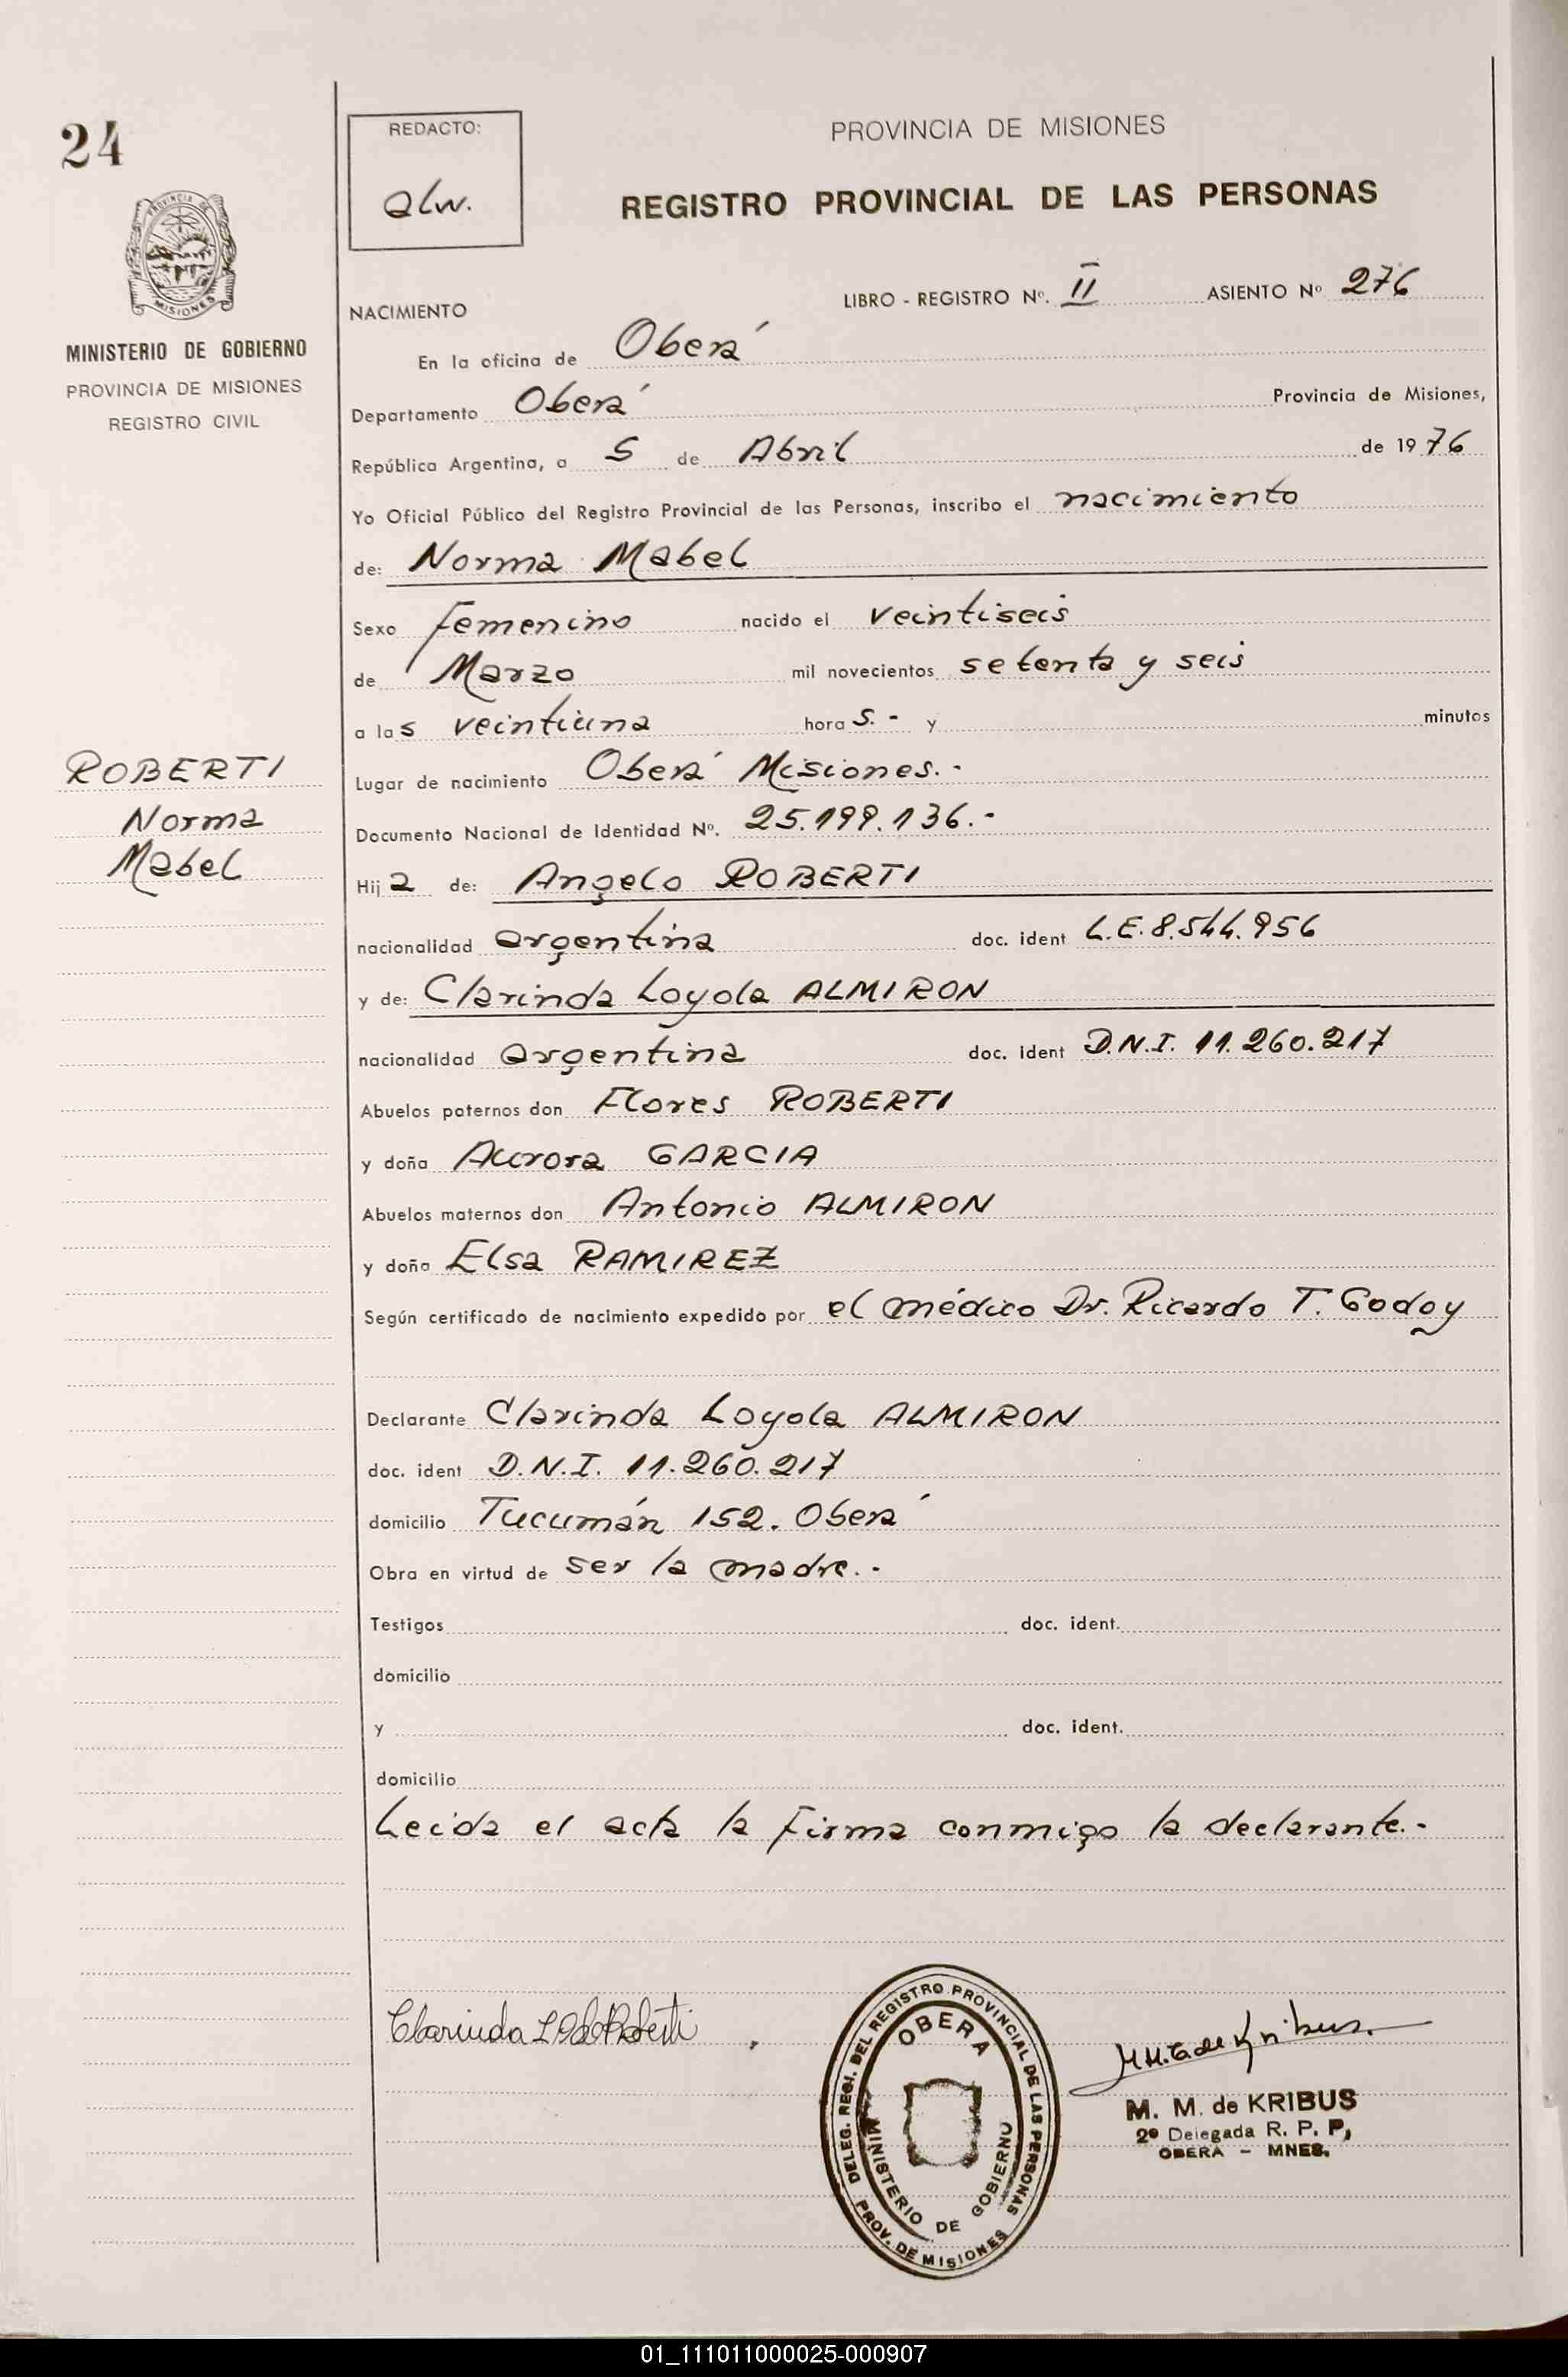 24
REDACTO:
alw.
PROVINCIA DE MISIONES
REGISTRO PROVINCIAL DE LAS PERSONAS
PROVINCIA DE
MISIONES
MINISTERIO DE GOBIERNO
PROVINCIA DE MISIONES
REGISTRO CIVIL
LIBRO - REGISTRO Nº. II ASIENTO Nº 276
NACIMIENTO
En la oficina de Oberá
Departamento Oberá Provincia de Misiones,
República Argentina, a 5 de Abril de 1976
Yo Oficial Público del Registro Provincial de las Personas, inscribo el nacimiento
de: Norma Mabel
Sexo Femenino nacido el veintiseis
de Marzo mil novecientos setenta y seis
a las veintiuna horas.- y minutos
ROBERTI
Norma
Mabel
Lugar de nacimiento Oberá Misiones.-
Documento Nacional de Identidad Nº. 25.199.136.-
Hija de: Angelo ROBERTI
nacionalidad argentina doc. ident L.E. 8.544.956
y de: Clarinda Loyola ALMIRON
nacionalidad argentina doc. ident D.N.I. 11.260.217
Abuelos paternos don Flores ROBERTI
y doña Aurora GARCIA
Abuelos maternos don Antonio ALMIRON
y doña Elsa RAMIREZ
Según certificado de nacimiento expedido por el médico Dr. Ricardo T. Godoy
Declarante Clarinda Loyola ALMIRON
doc. ident D.N.I. 11.260.217
domicilio Tucumán 152. Oberá
Obra en virtud de ser la madre.-
Testigos doc. ident.
domicilio
y doc. ident.
domicilio
Leida el acta la Firma conmigo la declarante.-
Clarinda L. de Roberti
DELEG. REGI. DEL REGISTRO PROVINCIAL DE LAS PERSONAS
OBERA
MINISTERIO DE GOBIERNO
PROV. DE MISIONES
M.M.G. de Kribus.
M. M. de KRIBUS
2º Delegada R. P. P,
OBERA - MNES.
01_111011000025-000907